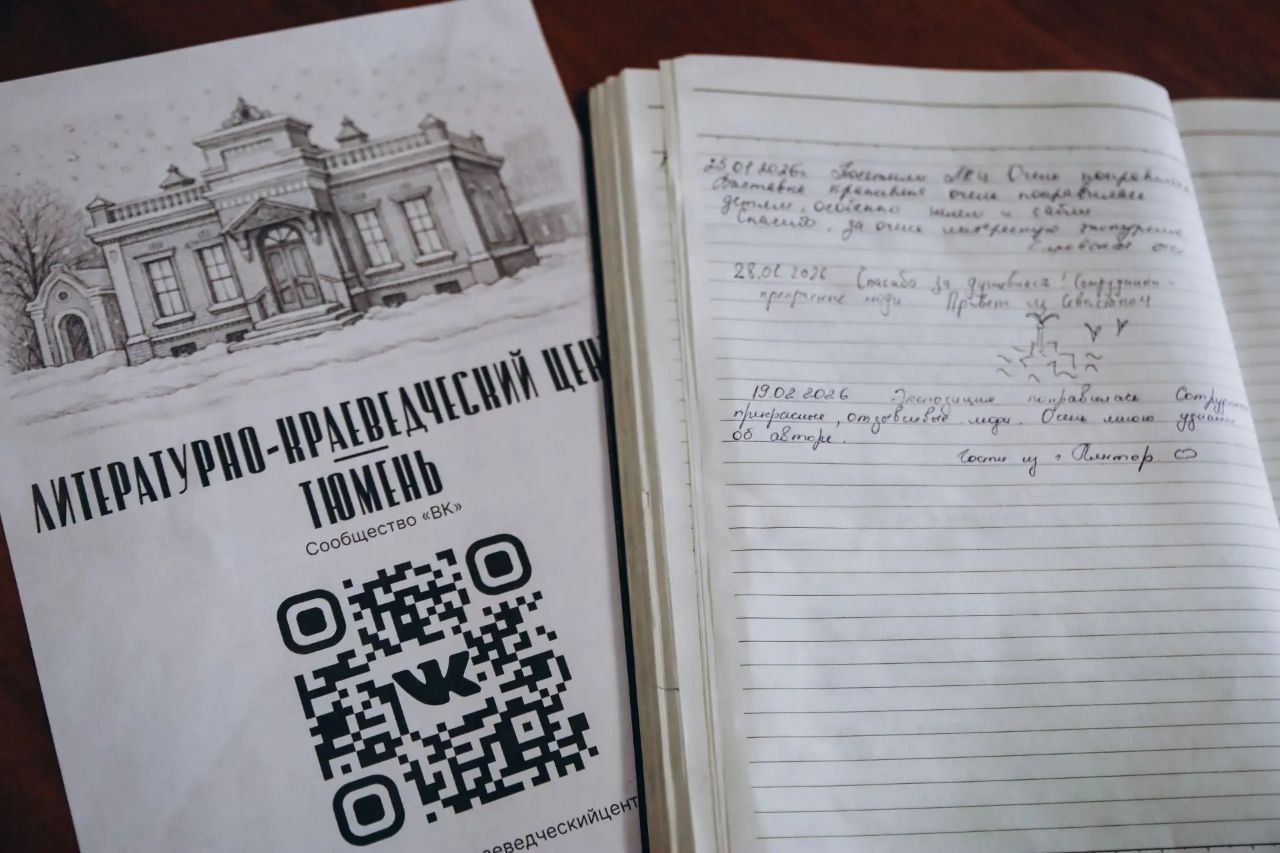 ЛИТЕРАТУРНО-КРАЕВЕДЧЕСКИЙ ЦЕН
ТЮМЕНЬ
Сообщество «ВК»
еведческийцент
25.01.2026г Посетили ЛКЦ Очень понравил
Выставка красивые очень понравилась
детям, особенно
Спасибо, за очень интересную экскурсию
28.01.2026 Спасибо за душевность! Сотрудники -
прекрасные люди Привет из Севастополя
19.02.2026 Экспозиция понравилась Сотрудн
прикрасные, отзывчивые люди. Очень много узнали
об авторе.
Гости из г